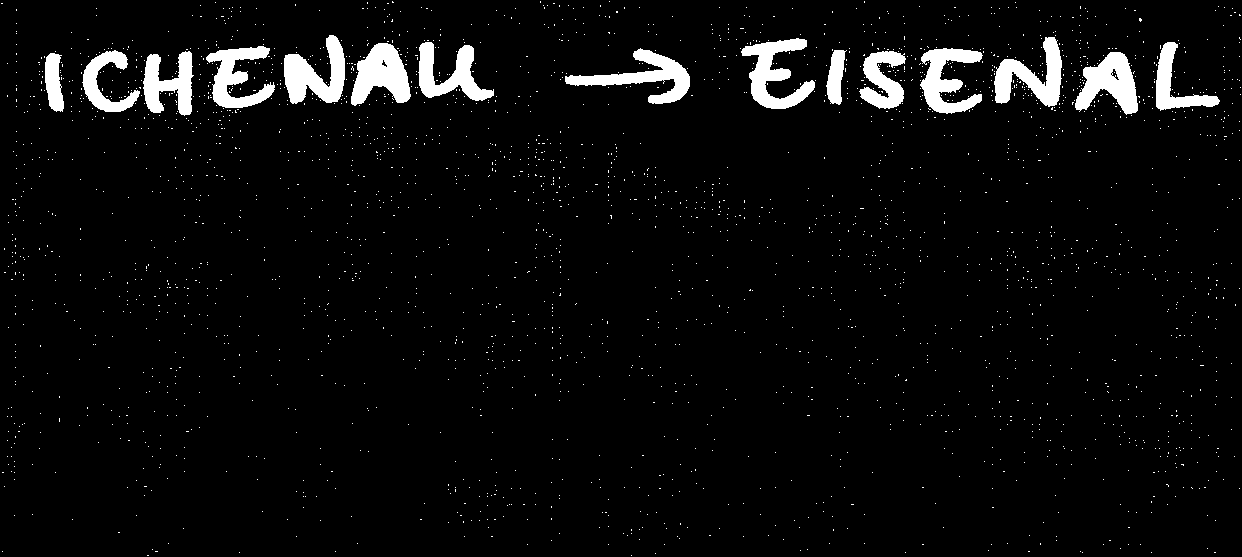 ICHENAU → EISENAL